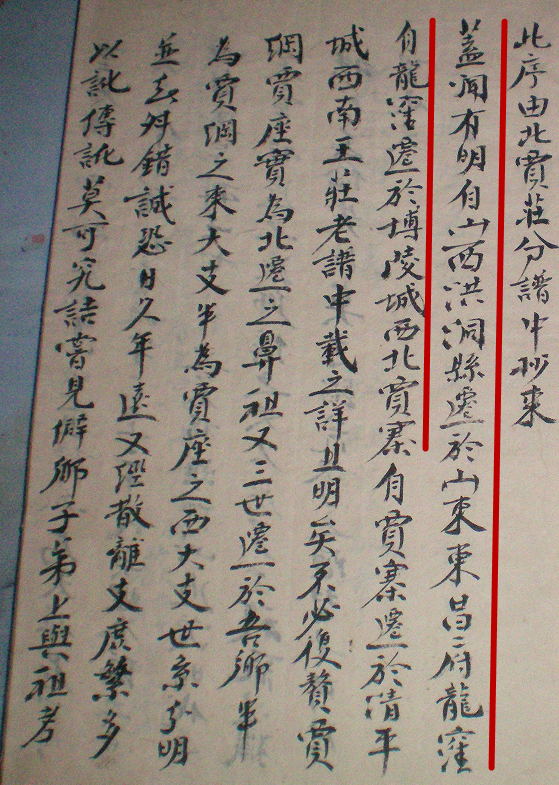 此序由北賈莊分譜中抄來
蓋聞有明自山西洪洞縣遷於山東東昌府龍窪
自龍窪遷於博陵城西北賈寨自賈寨遷於清平
城西南王莊老譜中載之詳且明矣不必復贅賈
綱賈座實為北遷之鼻祖又三世遷於吾鄉半
為賈綱之東大支半為賈座之西大支世系分明
並無舛錯誠恐日久年遠又經散離支广繁多
以訛傳訛莫可究詰嘗見僻鄉子弟上與祖考